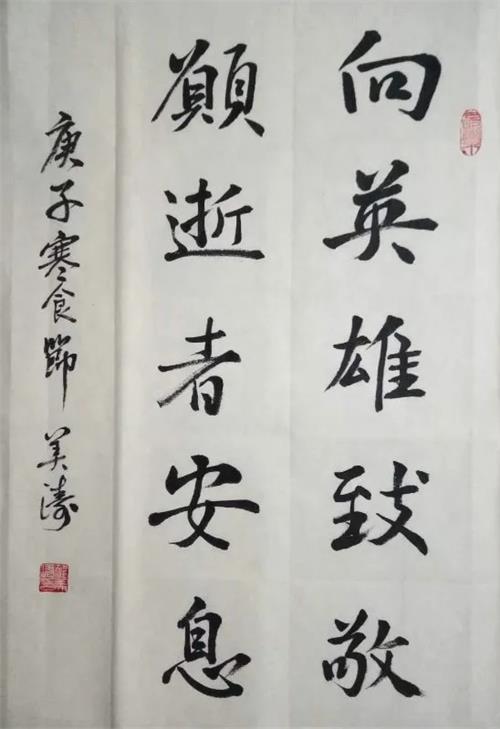 向英雄致敬
願逝者安息
庚子寒食節 美濤